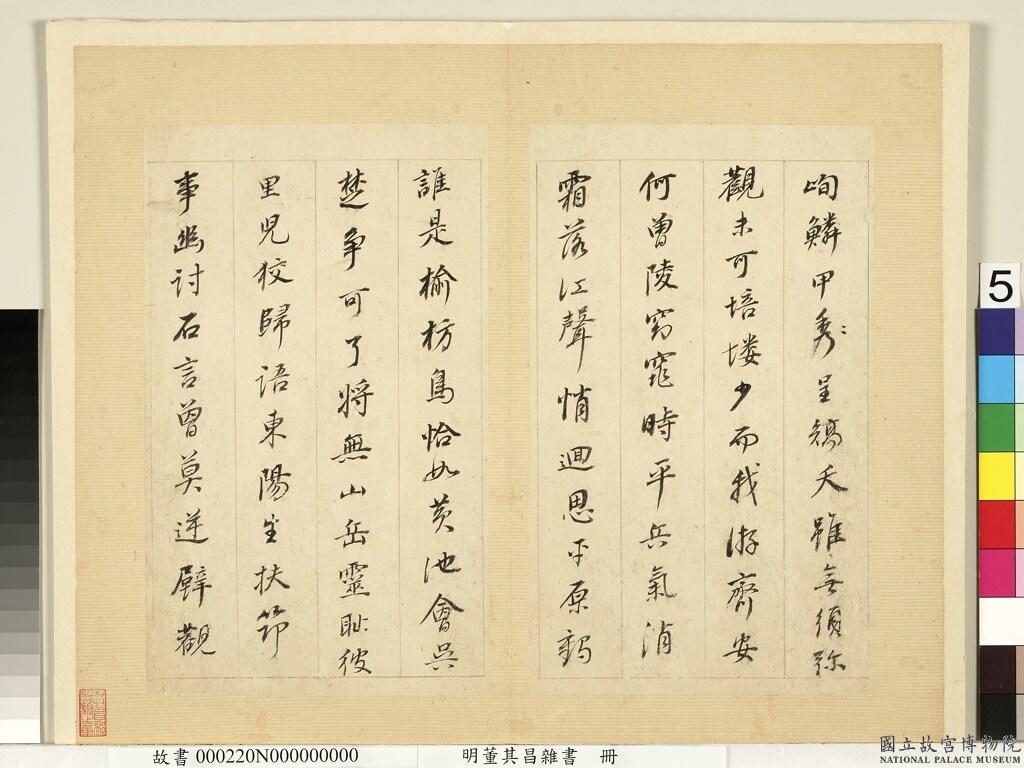 峋鱗甲秀〻呈稿夭雖無須彌
觀未可培塿少而我游齊安
何曾陵窈窕時平兵氣消
霜落江聲悄迴思平原鷄
誰是榆枋鳥恰如黃池會吳
楚爭可了將無山岳靈耻彼
里児狡歸語東陽生扶筇
事幽討石言曾莫逆壁觀
5
故書 000220N000000000
明董其昌雜書 冊
國立故宮博物院
NATIONAL PALACE MUSEUM